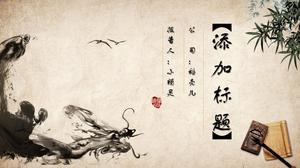 【添加标题】
公司:稻壳儿
报告人:小稻足